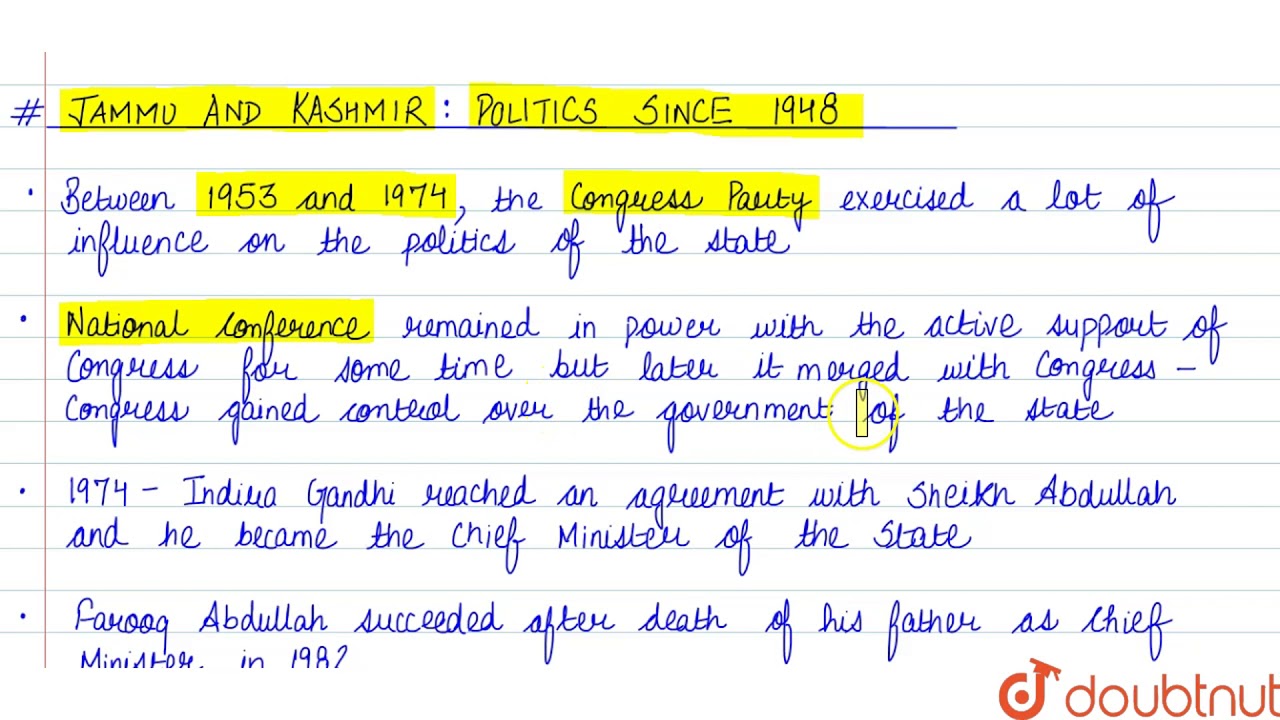 # JAMMU AND KASHMIR : POLITICS SINCE 1948
• Between 1953 and 1974, the Congress Party exercised a lot of
influence on the politics of the state
• National Conference remained in power with the active support of
Congress for some time but later it merged with Congress –
Congress gained control over the government of the state
• 1974 – Indira Gandhi reached an agreement with Sheikh Abdullah
and he became the Chief Minister of the State
• Farooq Abdullah succeeded after death of his father as Chief
Minister in 1982
doubtnut